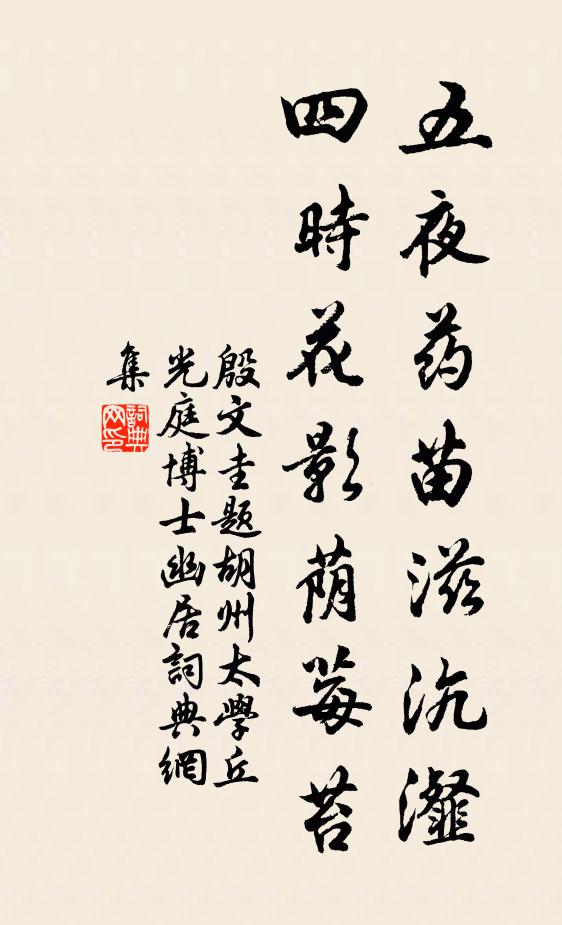 五夜药苗滋沆瀣
四時花影荫莓苔
殷文圭题胡州太學丘
光庭博士幽居詞典網
集
詞典
网印